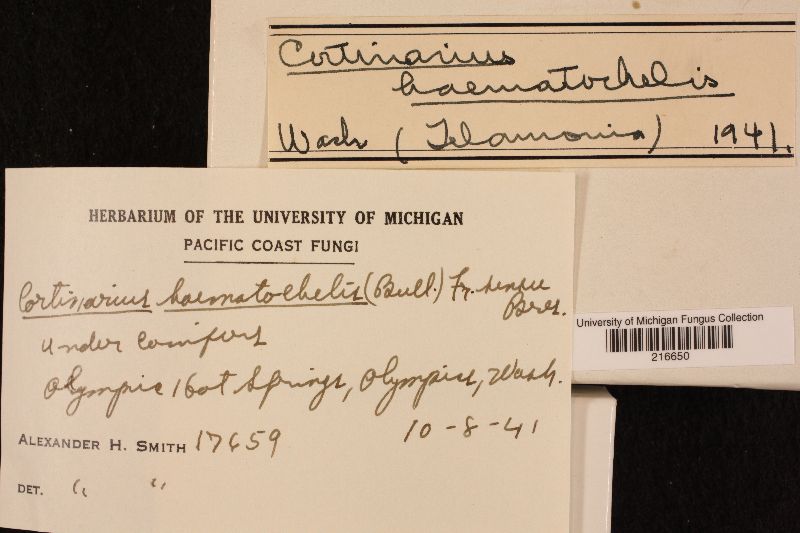 Cortinarius
haematochelis
Wash (Telamonia) 1941.
HERBARIUM OF THE UNIVERSITY OF MICHIGAN
PACIFIC COAST FUNGI
Cortinarius haematochelis (Bull.) Fr. sensu
Bres.
under conifers
Olympic Hot Springs, Olympics, Wash.
10-8-41
ALEXANDER H. SMITH 17659
DET. " "
University of Michigan Fungus Collection
216650